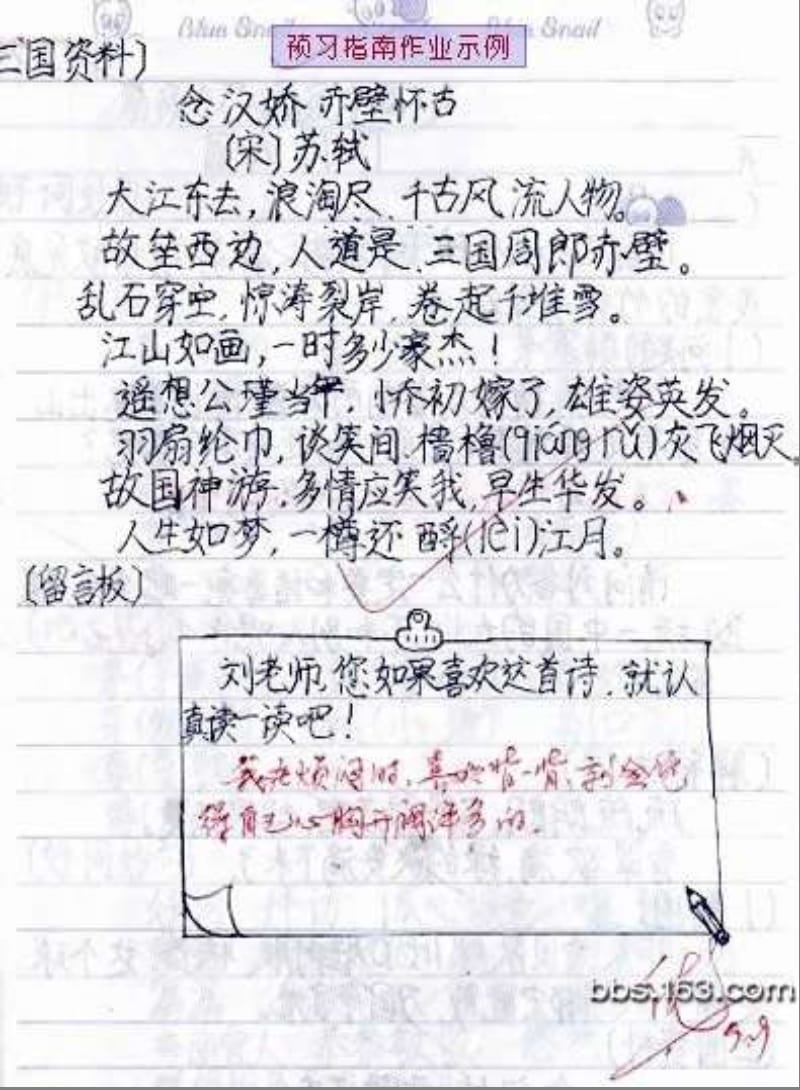 Blue Snail
Blue Snail
预习指南作业示例
三国资料〕
念汉娇 赤壁怀古
〔宋〕苏轼
大江东去,浪淘尽.千古风流人物。
故垒西边,人道是.三国周郎赤壁。
乱石穿空,惊涛裂岸,卷起千堆雪。
江山如画,一时多少豪杰!
遥想公瑾当年,小乔初嫁了,雄姿英发。
羽扇纶巾,谈笑间.樯橹(qiáng rǔ)灰飞烟灭。
故国神游.多情应笑我,早生华发。
人生如梦,一樽还酹(lèi)江月。
〔留言板〕
刘老师,您如果喜欢这首诗.就认
真读一读吧!
我在烦闷时,喜欢背一背,就会觉
得自己心胸开阔许多的.
优
9.9
bbs.163.com